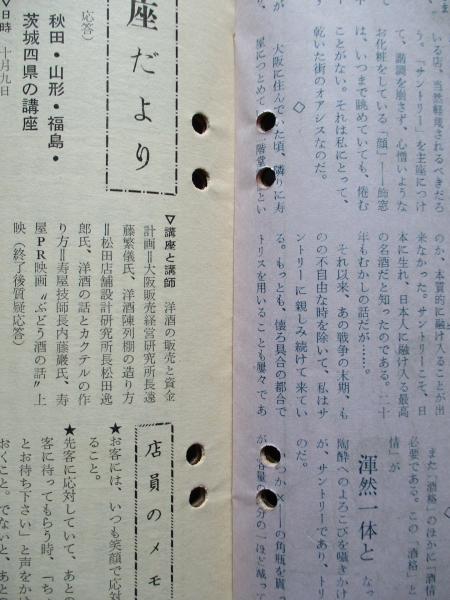 いる店、当然軽蔑されるべきだろ
う。「サントリー」を主座につけ
て、調調を崩さず、心憎いような
お化粧をしている「顔」——飾窓
は、いつまで眺めていても、倦む
ことがない。それは私にとって、
乾いた街のオアシスなのだ。
◇
大阪に住んでいた頃、隣りに寿
屋につとめてい
のか、本質的に融け入ることが出
来なかった。サントリーこそ、日
本に生れ、日本人に融け入る最高
の名酒だと知ったのである。二十
年もむかしの話だが……。
それ以来、あの戦争の末期、も
のの不自由な時を除いて、私はサ
ントリーに親しみ続けて来てい
る。もっとも、懐ろ具合の都合で
トリスを用いることも屡々であ
また「酒格」のほかに「酒情」が
必要である。この「酒格」と「酒
情」が
渾然一体と
なっ
陶酔へのよろこびを囁きかけ
が、サントリーであり、トリ
のだ。
の角瓶を買っ
座だより
応答)
秋田・山形・福島・
茨城四県の講座
▽日時 十月九日
▽講座と講師 洋酒の販売と資金
計画=大阪販売経営研究所長遠
藤繁儀氏、洋酒陳列棚の造り方
=松田店舗設計研究所長松田逸
郎氏、洋酒の話とカクテルの作
り方=寿屋技師長内藤巖氏、寿
屋PR映画〝ぶどう酒の話〟上
映(終了後質疑応答)
店員のメモ
★お客には、いつも笑顔で応対
ること。
★先客に応対していて、あとの
客に待ってもらう時、「ちょ
とお待ち下さい」と声をかけ
おくこと。でないと、あとの